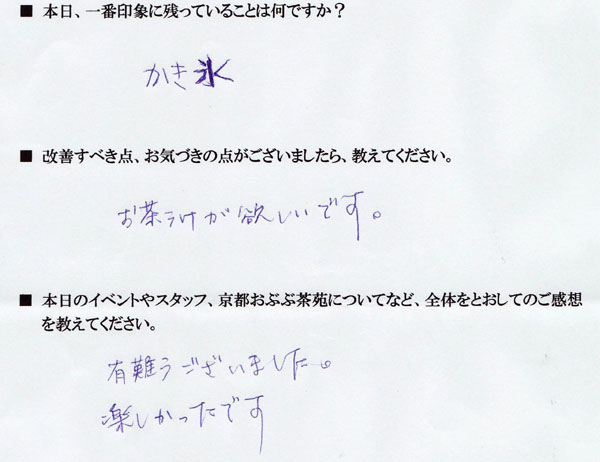 ■ 本日、一番印象に残っていることは何ですか？
かき氷
■ 改善すべき点、お気づきの点がございましたら、教えてください。
お茶うけが欲しいです。
■ 本日のイベントやスタッフ、京都おぶぶ茶苑についてなど、全体をとおしてのご感想
を教えてください。
有難うございました。
楽しかったです